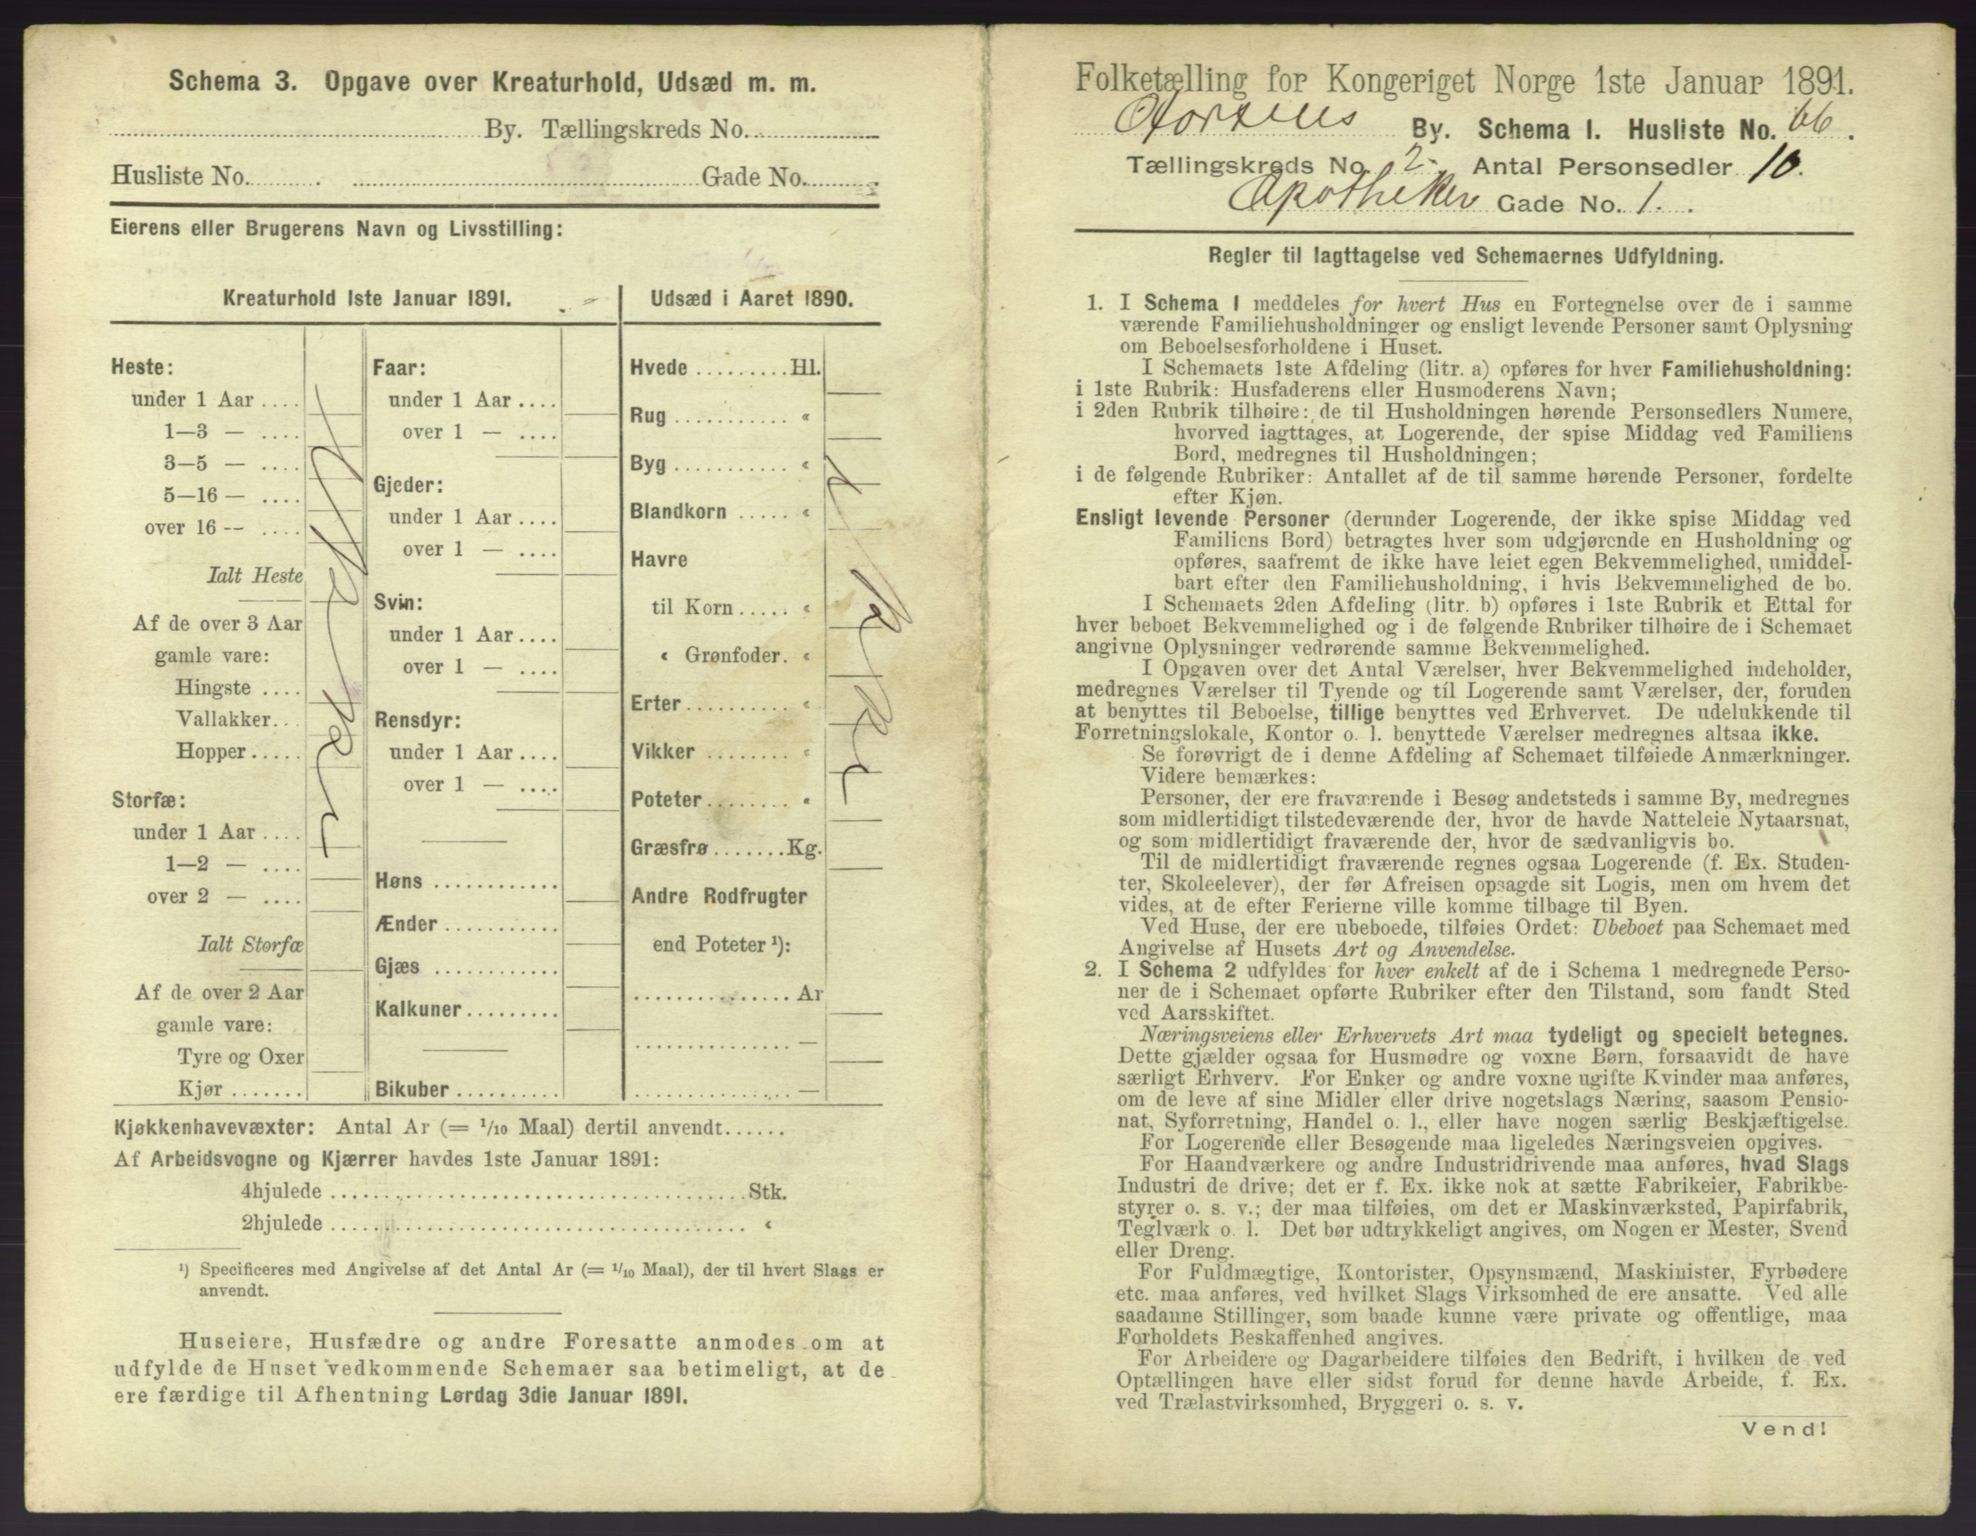 Schema 3. Opgave over Kreaturhold, Udsæd m. m.
By. Tællingskreds No.
Husliste No. Gade No.
Eierens eller Brugerens Navn og Livsstilling:
Kreaturhold 1ste Januar 1891.
Heste:
under 1 Aar
1—3 —
3—5 —
5—16 —
over 16 —
Ialt Heste
Af de over 3 Aar
gamle vare:
Hingste
Vallakker
Hopper
Storfæ:
under 1 Aar
1—2 —
over 2 —
Ialt Storfæ
Af de over 2 Aar
gamle vare:
Tyre og Oxer
Kjør
Faar:
under 1 Aar
over 1 —
Gjeder:
under 1 Aar
over 1 —
Svin:
under 1 Aar
over 1 —
Rensdyr:
under 1 Aar
over 1 —
Høns
Ænder
Gjæs
Kalkuner
Bikuber
Udsæd i Aaret 1890.
Hvede Hl.
Rug «
Byg «
Blandkorn «
Havre
til Korn «
« Grønfoder. «
Erter «
Vikker «
Poteter «
Græsfrø Kg.
Andre Rodfrugter
end Poteter ¹):
Ar
—
—
Kjøkkenhavevæxter: Antal Ar (= 1/10 Maal) dertil anvendt
Af Arbeidsvogne og Kjærrer havdes 1ste Januar 1891:
4hjulede Stk.
2hjulede «
¹) Specificeres med Angivelse af det Antal Ar (= 1/10 Maal), der til hvert Slags er
anvendt.
Huseiere, Husfædre og andre Foresatte anmodes om at
udfylde de Huset vedkommende Schemaer saa betimeligt, at de
ere færdige til Afhentning Lørdag 3die Januar 1891.
Folketælling for Kongeriget Norge 1ste Januar 1891.
Horten By. Schema 1. Husliste No. 66.
Tællingskreds No. 2. Antal Personsedler 10.
Apotheker Gade No. 1.
Regler til Iagttagelse ved Schemaernes Udfyldning.
1. I Schema 1 meddeles for hvert Hus en Fortegnelse over de i samme
værende Familiehusholdninger og ensligt levende Personer samt Oplysning
om Beboelsesforholdene i Huset.
I Schemaets 1ste Afdeling (litr. a) opføres for hver Familiehusholdning:
i 1ste Rubrik: Husfaderens eller Husmoderens Navn;
i 2den Rubrik tilhøire: de til Husholdningen hørende Personsedlers Numere,
hvorved iagttages, at Logerende, der spise Middag ved Familiens
Bord, medregnes til Husholdningen;
i de følgende Rubriker: Antallet af de til samme hørende Personer, fordelte
efter Kjøn.
Ensligt levende Personer (derunder Logerende, der ikke spise Middag ved
Familiens Bord) betragtes hver som udgjørende en Husholdning og
opføres, saafremt de ikke have leiet egen Bekvemmelighed, umiddel-
bart efter den Familiehusholdning, i hvis Bekvemmelighed de bo.
I Schemaets 2den Afdeling (litr. b) opføres i 1ste Rubrik et Ettal for
hver beboet Bekvemmelighed og i de følgende Rubriker tilhøire de i Schemaet
angivne Oplysninger vedrørende samme Bekvemmelighed.
I Opgaven over det Antal Værelser, hver Bekvemmelighed indeholder,
medregnes Værelser til Tyende og til Logerende samt Værelser, der, foruden
at benyttes til Beboelse, tillige benyttes ved Erhvervet. De udelukkende til
Forretningslokale, Kontor o. l. benyttede Værelser medregnes altsaa ikke.
Se forøvrigt de i denne Afdeling af Schemaet tilføiede Anmærkninger.
Videre bemærkes:
Personer, der ere fraværende i Besøg andetsteds i samme By, medregnes
som midlertidigt tilstedeværende der, hvor de havde Natteleie Nytaarsnat,
og som midlertidigt fraværende der, hvor de sædvanligvis bo.
Til de midlertidigt fraværende regnes ogsaa Logerende (f. Ex. Studen-
ter, Skoleelever), der før Afreisen opsagde sit Logis, men om hvem det
vides, at de efter Ferierne ville komme tilbage til Byen.
Ved Huse, der ere ubeboede, tilføies Ordet: Ubeboet paa Schemaet med
Angivelse af Husets Art og Anvendelse.
2. I Schema 2 udfyldes for hver enkelt af de i Schema 1 medregnede Perso-
ner de i Schemaet opførte Rubriker efter den Tilstand, som fandt Sted
ved Aarsskiftet.
Næringsveiens eller Erhvervets Art maa tydeligt og specielt betegnes.
Dette gjælder ogsaa for Husmødre og voxne Børn, forsaavidt de have
særligt Erhverv. For Enker og andre voxne ugifte Kvinder maa anføres,
om de leve af sine Midler eller drive nogetslags Næring, saasom Pensio-
nat, Syforretning, Handel o. l., eller have nogen særlig Beskjæftigelse.
For Logerende eller Besøgende maa ligeledes Næringsveien opgives.
For Haandværkere og andre Industridrivende maa anføres, hvad Slags
Industri de drive; det er f. Ex. ikke nok at sætte Fabrikeier, Fabrikbe-
styrer o. s. v.; der maa tilføies, om det er Maskinværksted, Papirfabrik,
Teglværk o. l. Det bør udtrykkeligt angives, om Nogen er Mester, Svend
eller Dreng.
For Fuldmægtige, Kontorister, Opsynsmænd, Maskinister, Fyrbødere
etc. maa anføres, ved hvilket Slags Virksomhed de ere ansatte. Ved alle
saadanne Stillinger, som baade kunne være private og offentlige, maa
Forholdets Beskaffenhed angives.
For Arbeidere og Dagarbeidere tilføies den Bedrift, i hvilken de ved
Optællingen have eller sidst forud for denne havde Arbeide, f. Ex.
ved Trælastvirksomhed, Bryggeri o. s. v.
Vend!